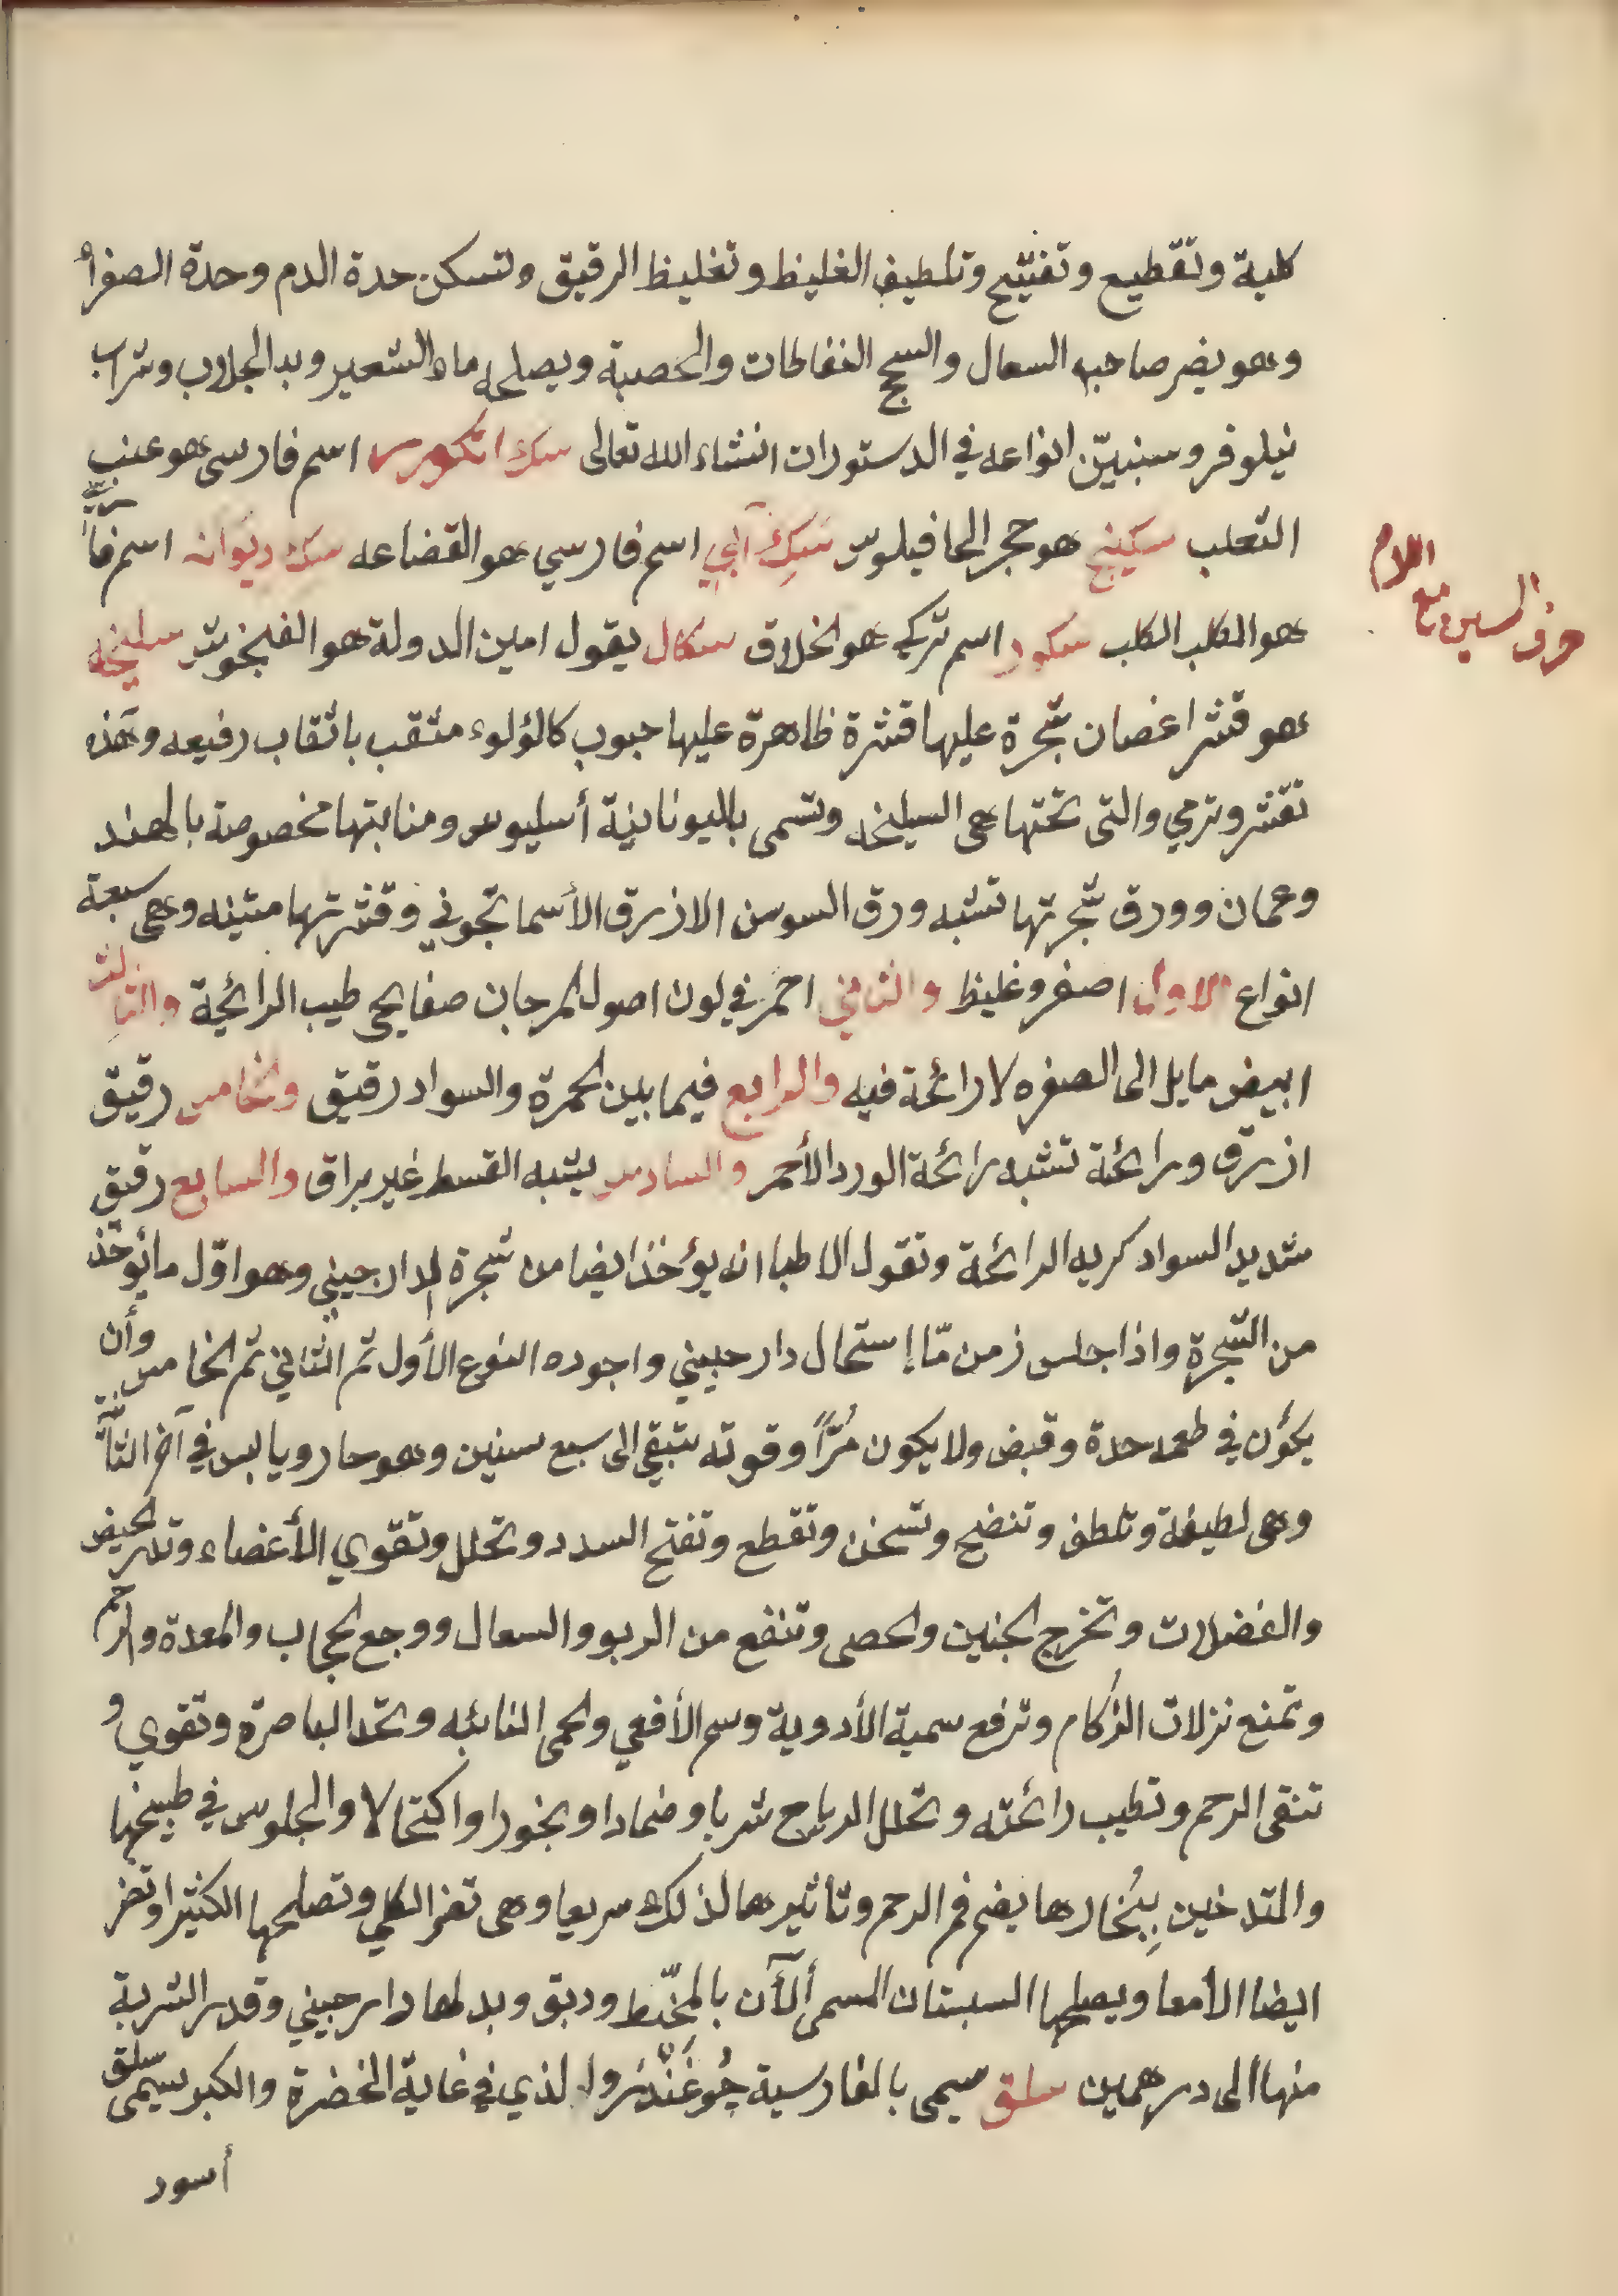 كلية وتقطيع وتفتيح وتلطيف الغليظ وتغليظ الرقيق وتسكن حدة الدم وحدة الصفرا
وهو يضر صاحب السعال والسحج النفاطات والحصبة ويصلحه ماء الشعير وبد الجلاب وشراب
نيلوفر وسنبيّن انواعه في الدستورات انشاء الله تعالى سك انكورس اسم فارسى هو عنب
الثعلب سكينج هو حجر الحافيلوس سَكِ آبي اسم فارسي هو القضاعه سك ديوانه اسم فا رسيٌّ
هو الكلب الكلب سكور اسم تركي هو الخلاق سكال يقول امين الدولة هو الفنجوش سليخه
هو قشر اغصان شجرة عليها قشرة ظاهرة عليها حبوب كالؤلوء مثقب باثقاب رفيعه وهذه
تقشر وترمي والتى تحتها هى السليخه وتسمى باليونانية أسليوس ومنابتها مخصوصة بالهند
وعمان وورق شجرتها تشبه ورق السوسن الازرق الأسمانجوني وقشرتها متينه وهى سبعة
انواع الاول اصفر وغليظ والثاني احمر في لون اصول المرجان صفايحى طيب الرائحية والثالث
ابيض مايل الى الصفره لا رائحة فيه والرابع فيما بين الحمرة والسواد رقيق والخامس رقيق
ازرق ورائحة تشبه رائحة الورد الأحمر والسادس يشبه القسط غير براق والسابع رقيق
شديد السواد كريه الرائحة وتقول الاطبا انه يؤخذ ايضا من شجرة الدارجيني وهو اوّل ما يؤخذ
من الشجرة واذا جلس زمن مّا إستحال دارجيني واجوده النوع الأول ثم الثاني ثم الخامس وأن
يكؤن في طعمه حدة وقبض ولا يكون مُرًّا وقوته تبقي الى سبع سنين وهو حار ويابس في آخر الثالثة
وهى لطيفة وتلطف وتنضج وتسخن وتقطع وتفتح السدد وتحلل وتقوي الأعضاء وتدر الحيض
والفضلات وتخرج الجنين والحصى وتنفع من الربو والسعال ووجع الحجاب والمعدة والرحم
وتمنع نزلات الزكام وترفع سمية الأدوية وسم الأفعي والحمى النائبه وتحد الباصرة وتقوي و
تنقى الرحم وتطيب رائحته وتحلل الرياح شربا وضمادا وبخورا واكتحالا والجلوس في طبيخها
والتدخين بِبُخارها يضم فم الرحم وتاثيرها لذلك سريعا وهى تضر الكلي وتصلحها الكثيرا وتضر
ايضا الأمعا ويصلحها السبستان المسمى ألآن بالمخّيط ودبق وبدلها دارجيني وقدر الشربة
منها ألى درهمين سلق سيمى بالفارسية چُوغَنْدَروا لذي في غاية الخضرة والكبر يسمى سلق
أسود
حرف السين مع اللام